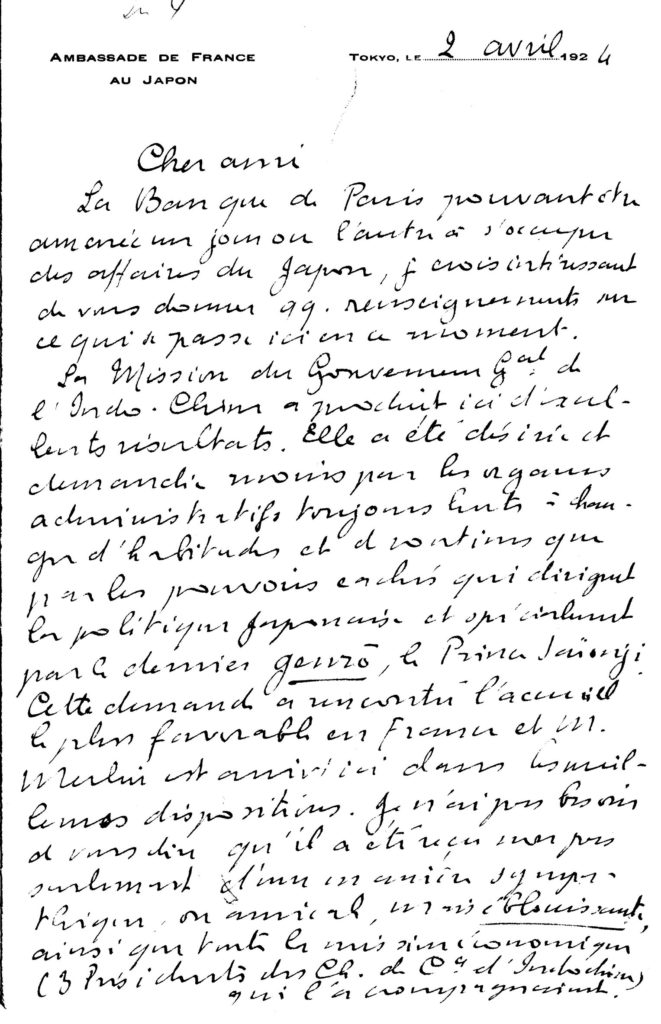 AMBASSADE DE FRANCE
AU JAPON
TOKYO, LE 2 avril 1924
Cher ami
La Banque de Paris pouvant être
amenée un jour ou l'autre à s'occuper
des affaires du Japon, je crois intéressant
de vous donner qq. renseignements sur
ce qui se passe ici en ce moment.
La Mission du Gouverneur Gal de
l'Indo-Chine a produit ici d'excel-
lents résultats. Elle a été désirée et
demandée moins par les organes
administratifs toujours lents à chan-
ger d'habitudes et de routines que
par les pouvoirs cachés qui dirigent
la politique Japonaise et spécialement
par le dernier genrō, le Prince Saïonji.
Cette demande a rencontré l'accueil
le plus favorable en France et M.
Merlin est arrivé ici dans les meil-
leures dispositions. Je n'ai pas besoin
de vous dire qu'il a été reçu non pas
seulement d'une manière sympa-
thique, ou amicale, mais éblouissante,
ainsi que toute la mission économique
(3 Présidents des Ch. de Ce d'Indochine)
qui l'accompagnaient.